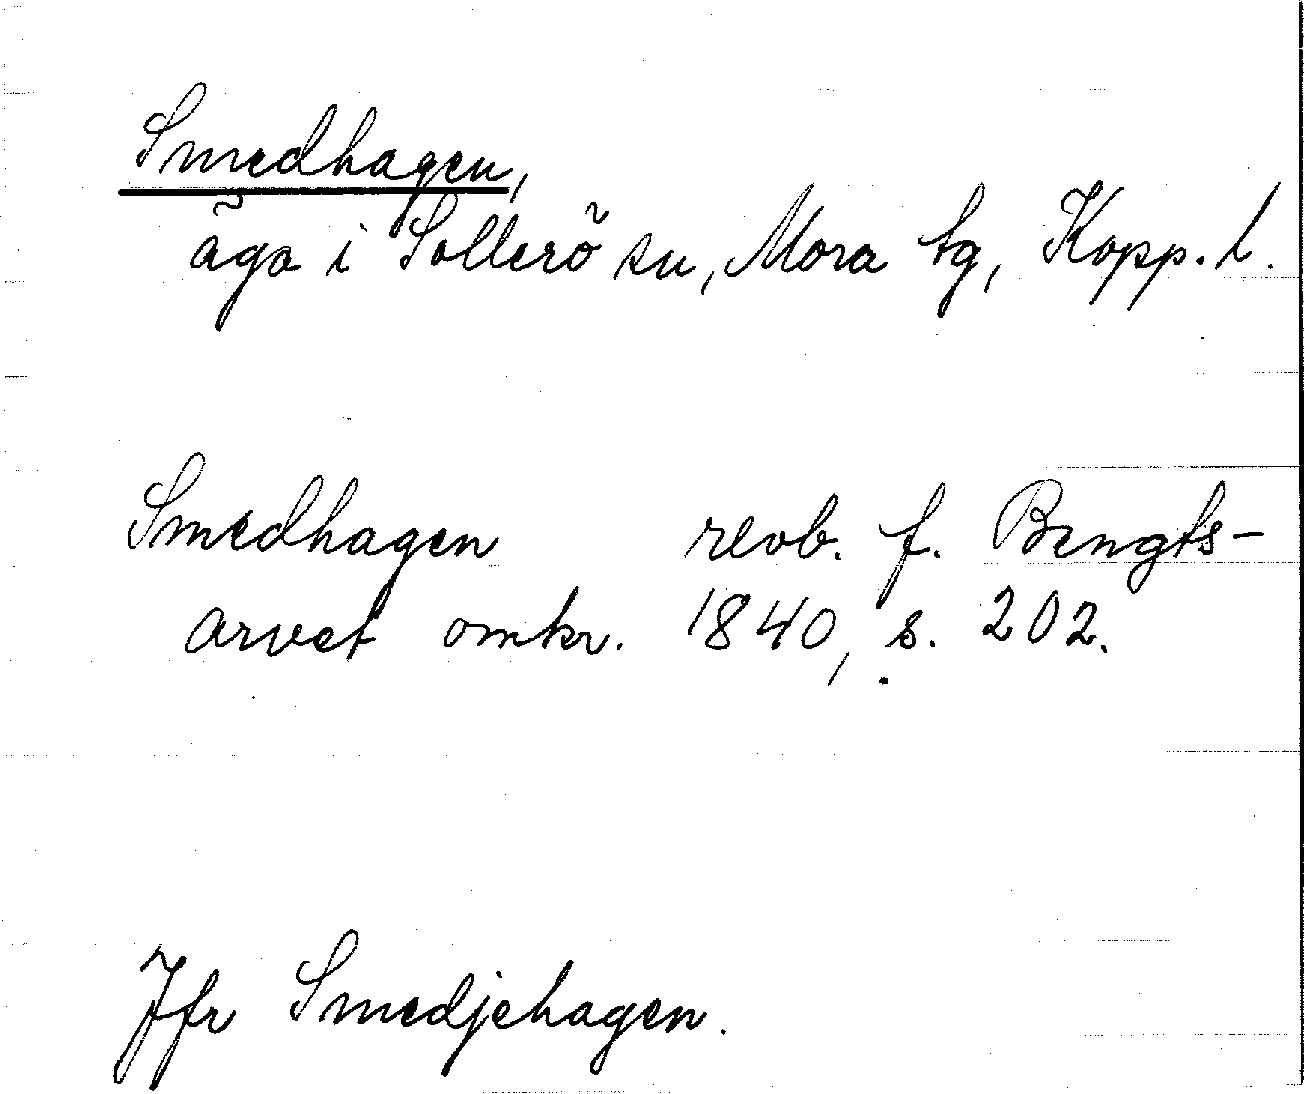 Smedhagen,
äga i Sollerö sn, Mora tg, Kopp. l.
Smedhagen revb. f. Bengts-
arvet omkr. 1840, s. 202.
Jfr Smedjehagen.